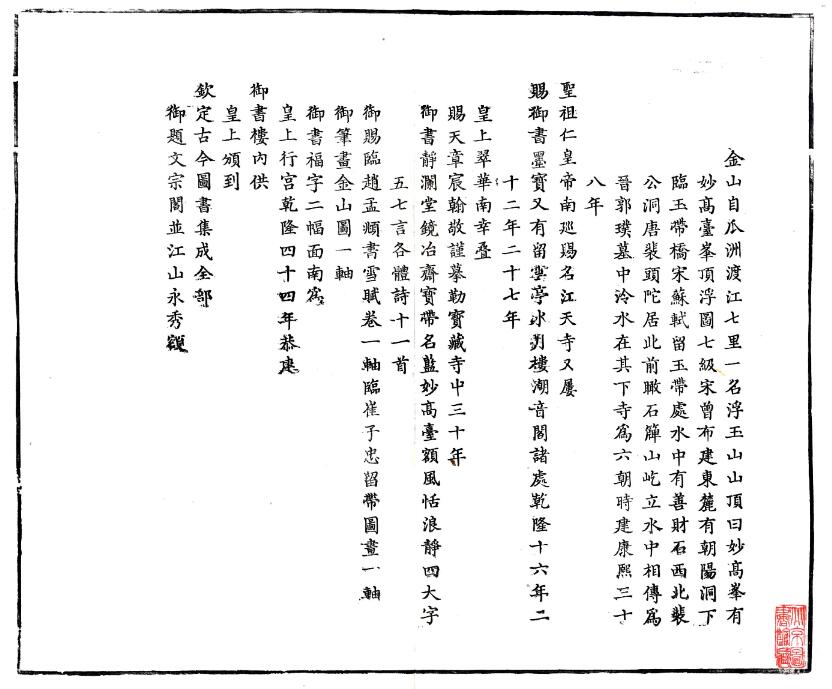 金山自瓜洲渡江七里一名浮玉山山頂曰妙髙峯有
妙髙臺峯頂浮圖七級宋曾布建東麓有朝陽洞下
臨玉帶橋宋蘇軾留玉帶處水中有善財石西北裴
公洞唐裴頭陀居此前瞰石簰山屹立水中相傳為
晉郭璞墓中泠水在其下寺為六朝時建康熙三十
八年
聖祖仁皇帝南廵賜名江天寺又屢
賜御書墨寳又有留雲亭氷玥樓潮音閣諸處乾隆十六年二
十二年二十七年
皇上翠華南幸疊
賜天章宸翰敬謹摹勒寳藏寺中三十年
御書靜瀾堂鏡治齋寳帶名藍妙髙臺額風恬浪靜四大字
五七言各體詩十一首
御賜臨趙孟頫書雪賦卷一軸臨崔子忠留帶圖畫一軸
御筆畫金山圖一軸
御書福字二幅面南為
皇上行宫乾隆四十四年恭建
御書樓内供
皇上頒到
欽定古今圖書集成全部
御題文宗閣並江山永秀額